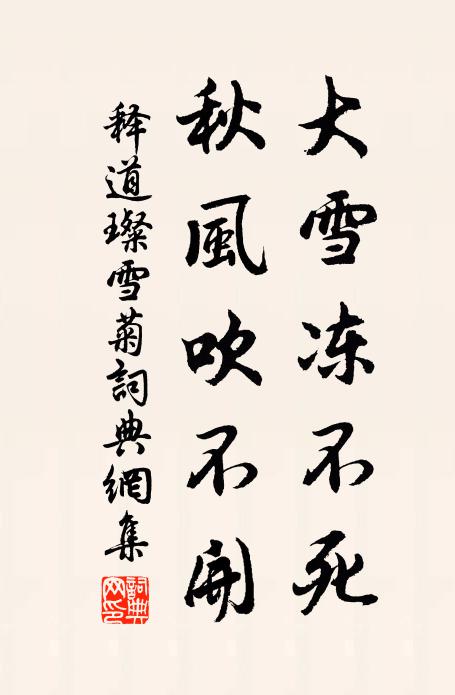 大雪冻不死
秋風吹不開
释道璨雪菊詞典網集
詞典网印